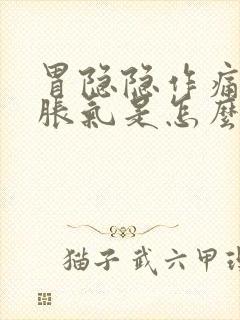 胃隐隐作痛
胀氣是怎麽
猫子 武六甲